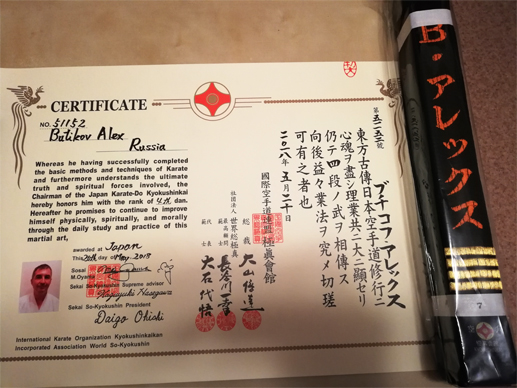 CERTIFICATE
NO. 51152
Butikov Alex
Russia
Whereas he having successfully completed
the basic methods and techniques of Karate
and furthermore understands the ultimate
truth and spiritual forces involved, the
Chairman of the Japan Karate-Do Kyokushinkai
hereby honors him with the rank of 4th dan.
Hereafter he promises to continue to improve
himself physically, spiritually, morally
through the daily study and practice of this
martial art,
awarded at Japan
This 20th day of May 2018
Sosai
M.Oyama
Sekai So-Kyokushin Supreme advisor
Kazuyuki Hasegawa
Sekai So-Kyokushin President
Daigo Ohishi
International Karate Organization Kyokushinkaikan
Incorporated Association World So-Kyokushin
ブチコフ アレックス
東方古傳日本空手道修行ニ
心魂ヲ盡シ理業共ニ大ニ顕セリ
仍テ四段ノ武ヲ相傳ス
向後益々業法ヲ究メ切瑳
可有之者也
二〇一八年五月二十日
國際空手道連盟極真會館
総裁 大山倍達
社団法人世界総極真
最高顧問 長谷川一幸
代表 大石代悟
B・アレックス
7